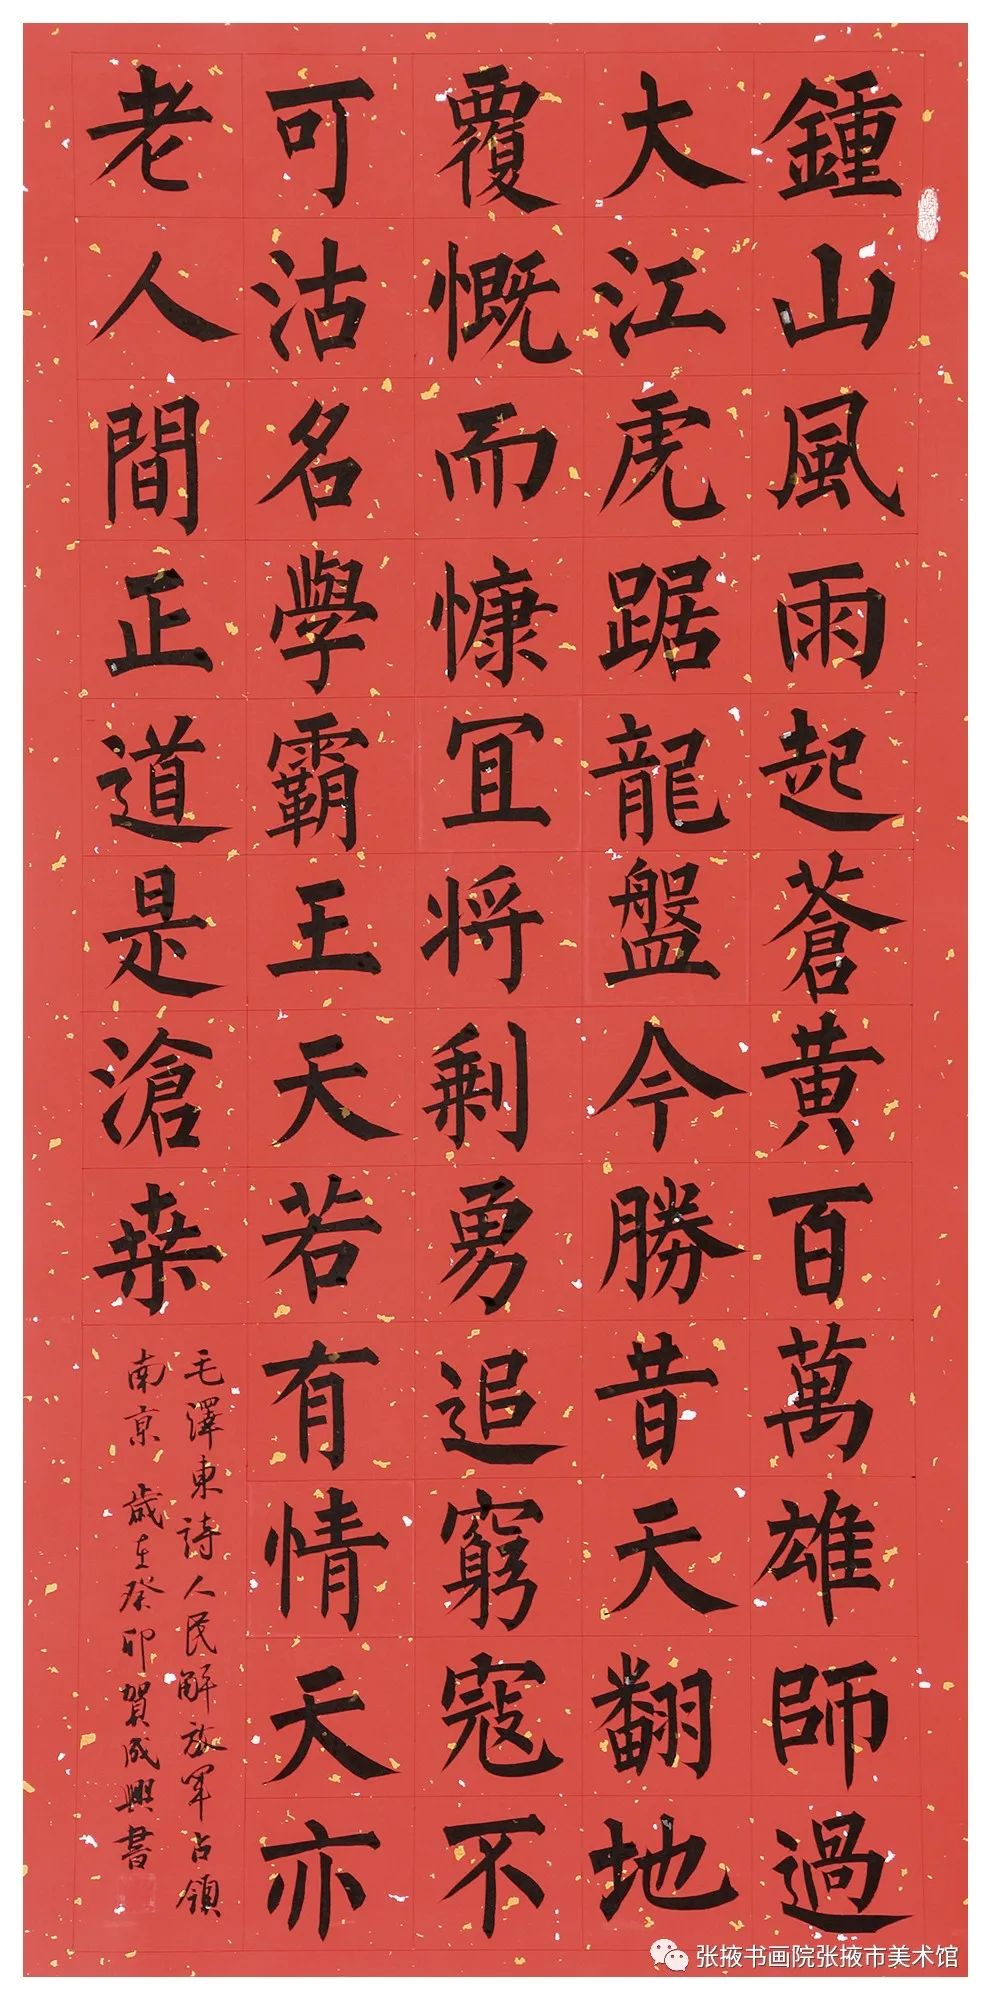 鍾山風雨起蒼黄百萬雄師過
大江虎踞龍盤今勝昔天翻地
覆慨而慷宜将剩勇追窮寇不
可沽名學霸王天若有情天亦
老人間正道是滄桒
毛澤東詩人民解放軍占領
南京 歲在癸卯賀成興書
张掖书画院张掖市美术馆